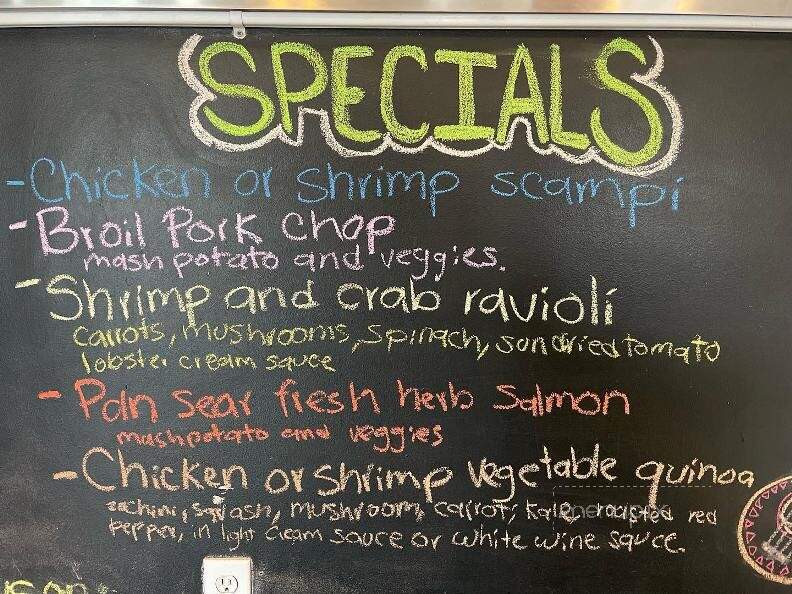 SPECIALS
- Chicken or shrimp scampi
- Broil Pork chop
mash potato and veggies.
- Shrimp and crab ravioli
carrots, mushrooms, spinach, sun dried tomato
lobster cream sauce
- Pan sear fresh herb salmon
mash potato and veggies
- Chicken or shrimp vegetable quinoa
squash, mushroom, carrots, kale, roasted red
pepper, in light cream sauce or white wine sauce.